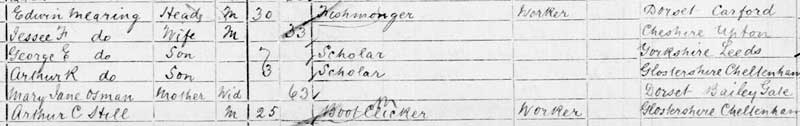 Edwin Mearing Head M 30 Fishmonger Worker Dorset Corford
Jessee F do Wife M 33 Cheshire Upton
George E do Son 7 Scholar Yorkshire Leeds
Arthur R do Son 3 Scholar Glostershire Cheltenham
Mary Jane Osman Mother Wid 63 Dorset Bailey Gate
Arthur C Still M 25 Boot Clicker Worker Glostershire Cheltenham